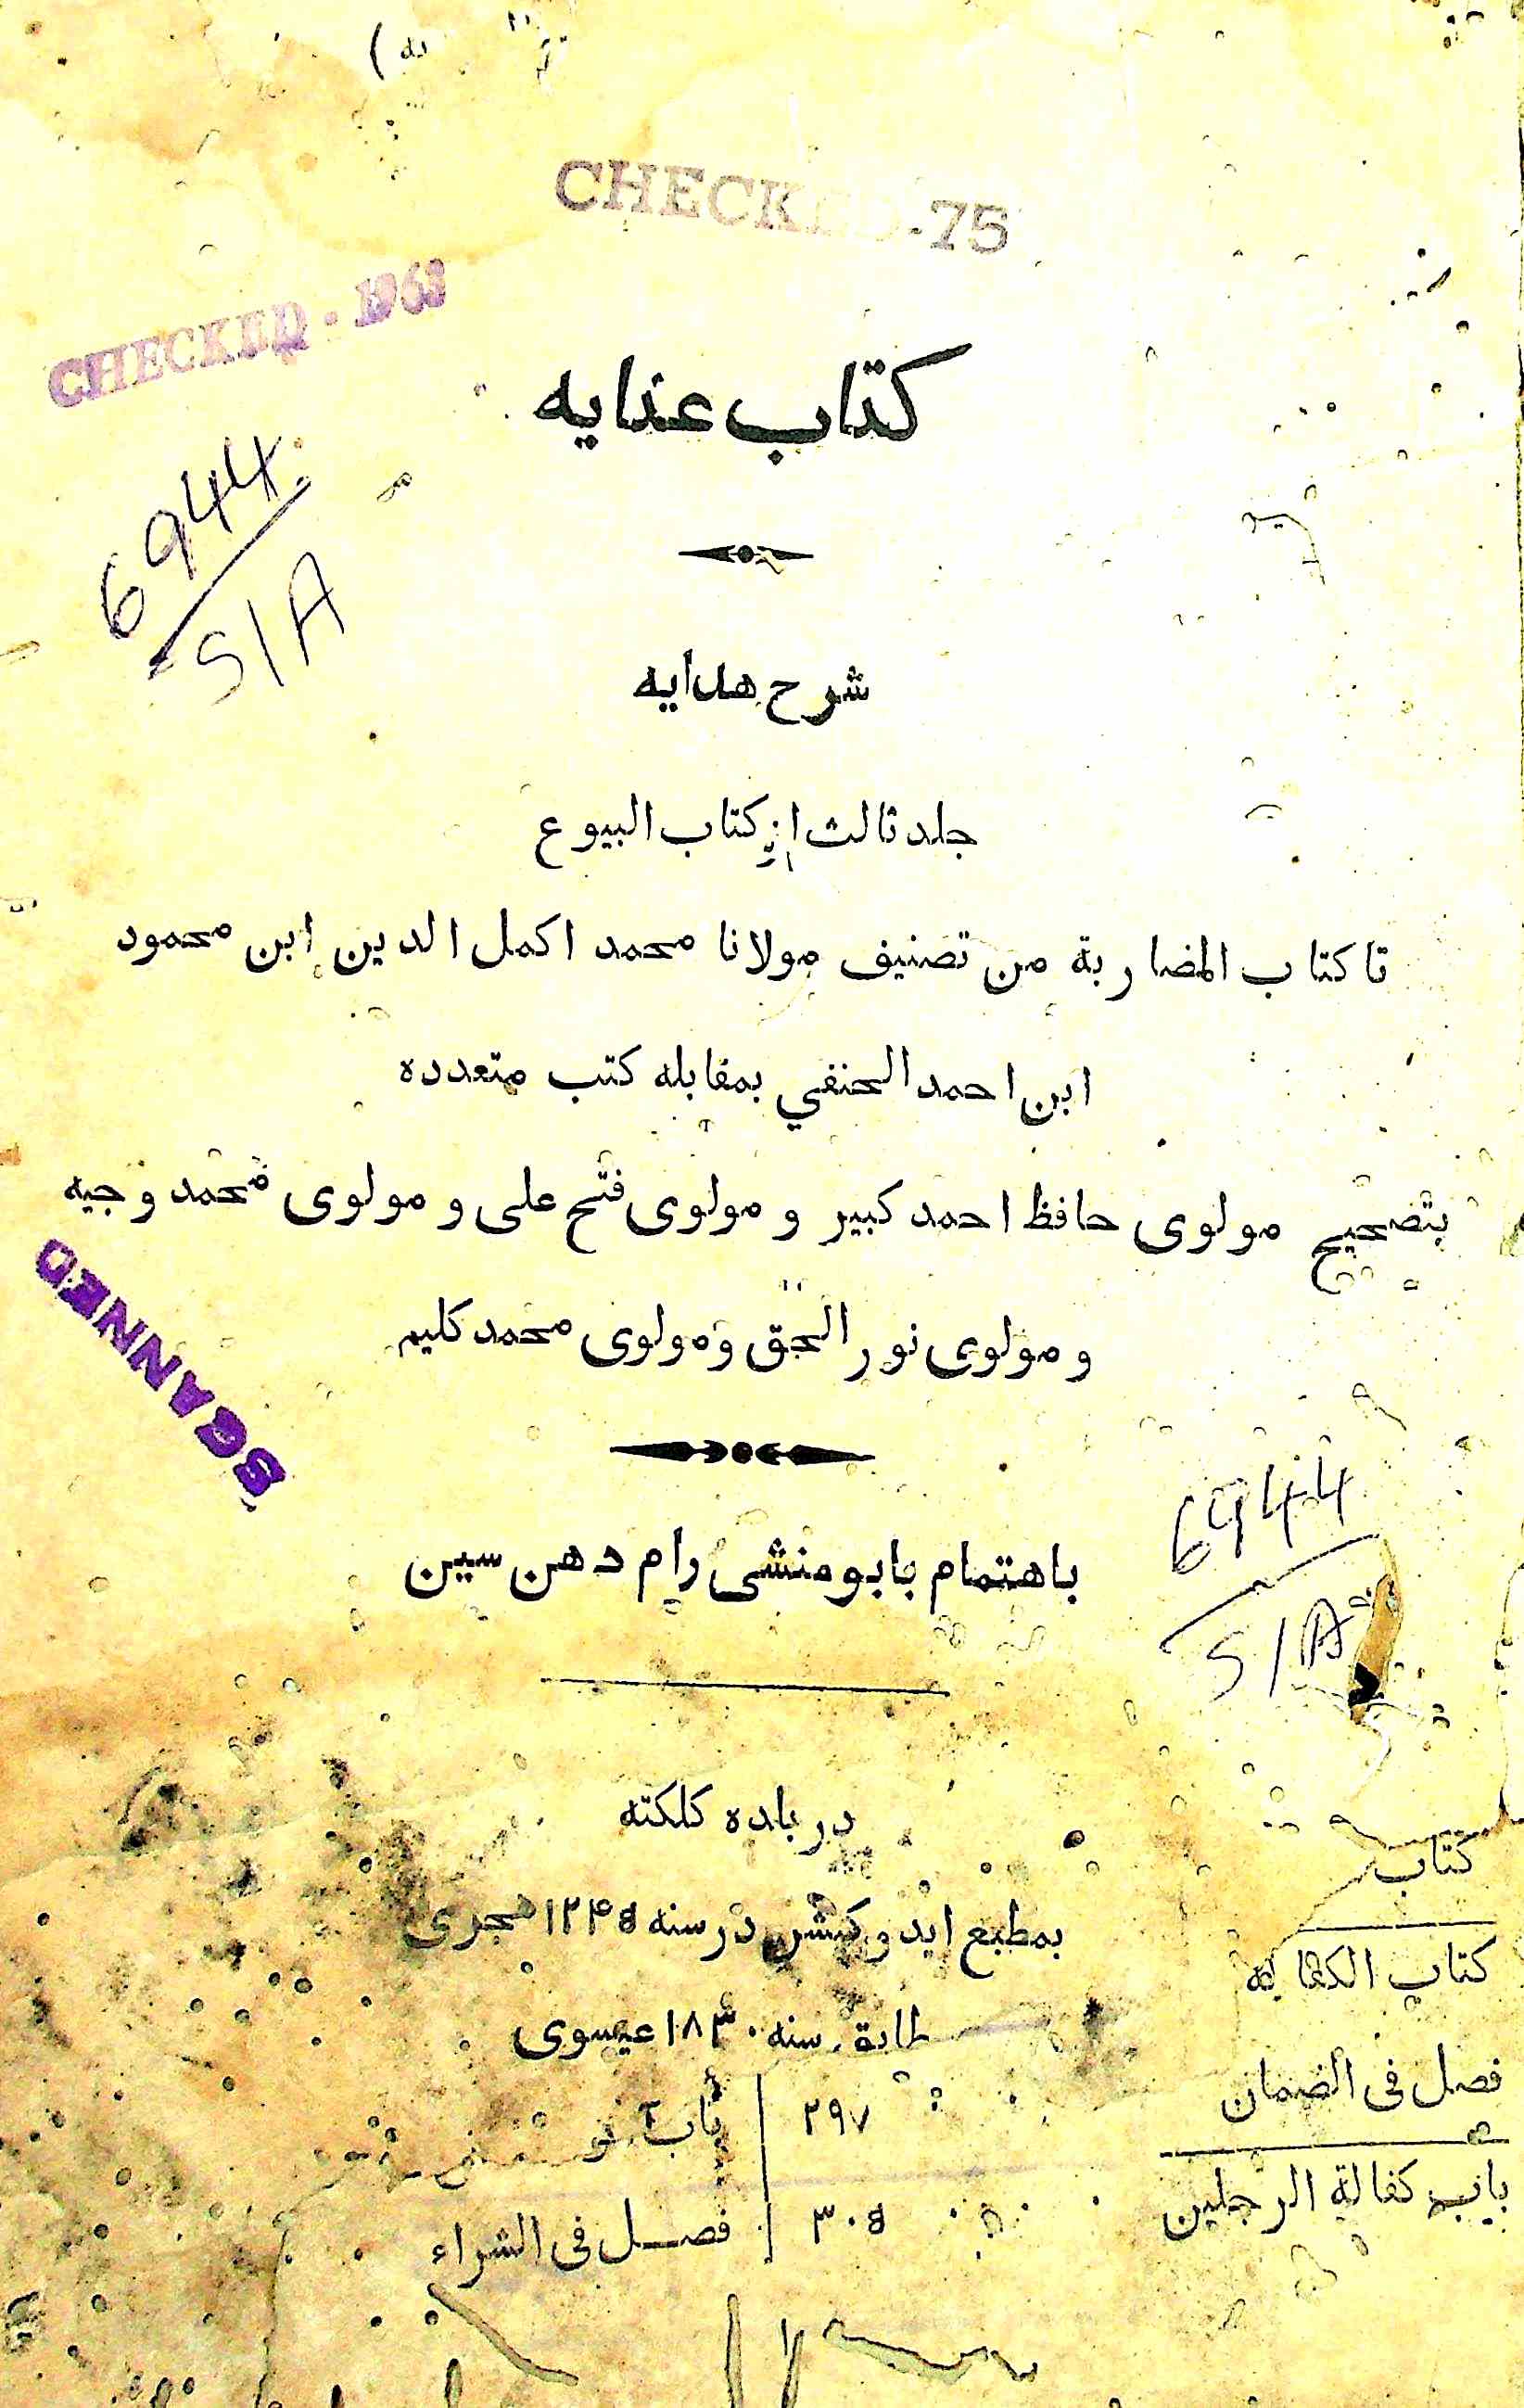 CHECKED-75
CHECKED-1963
كتاب عنايه
6944
S/A
شرح هدايه
جلد ثالث از كتاب البيوع
تا كتاب المضاربة من تصنيف مولانا محمد اكمل الدين ابن محمود
ابن احمد الحنفي بمقابله كتب متعدده
بتصحيح مولوى حافظ احمد كبير و مولوى فتح على و مولوى محمد وجيه
و مولوى نور الحق و مولوى محمد كليم
SCANNED
باهتمام بابو منشى رام دهن سين
6944
S/A
در بلده كلكته
كتاب
بمطبع ايدوكيشن در سنه ۱۲۴۵ هجرى
كتاب الكفالة
سنه ۱۸۳۰ عيسوى
فصل فى الضمان
۲۹۷
باب
باب كفالة الرجلين
۳۰۵
فصل فى الشراء